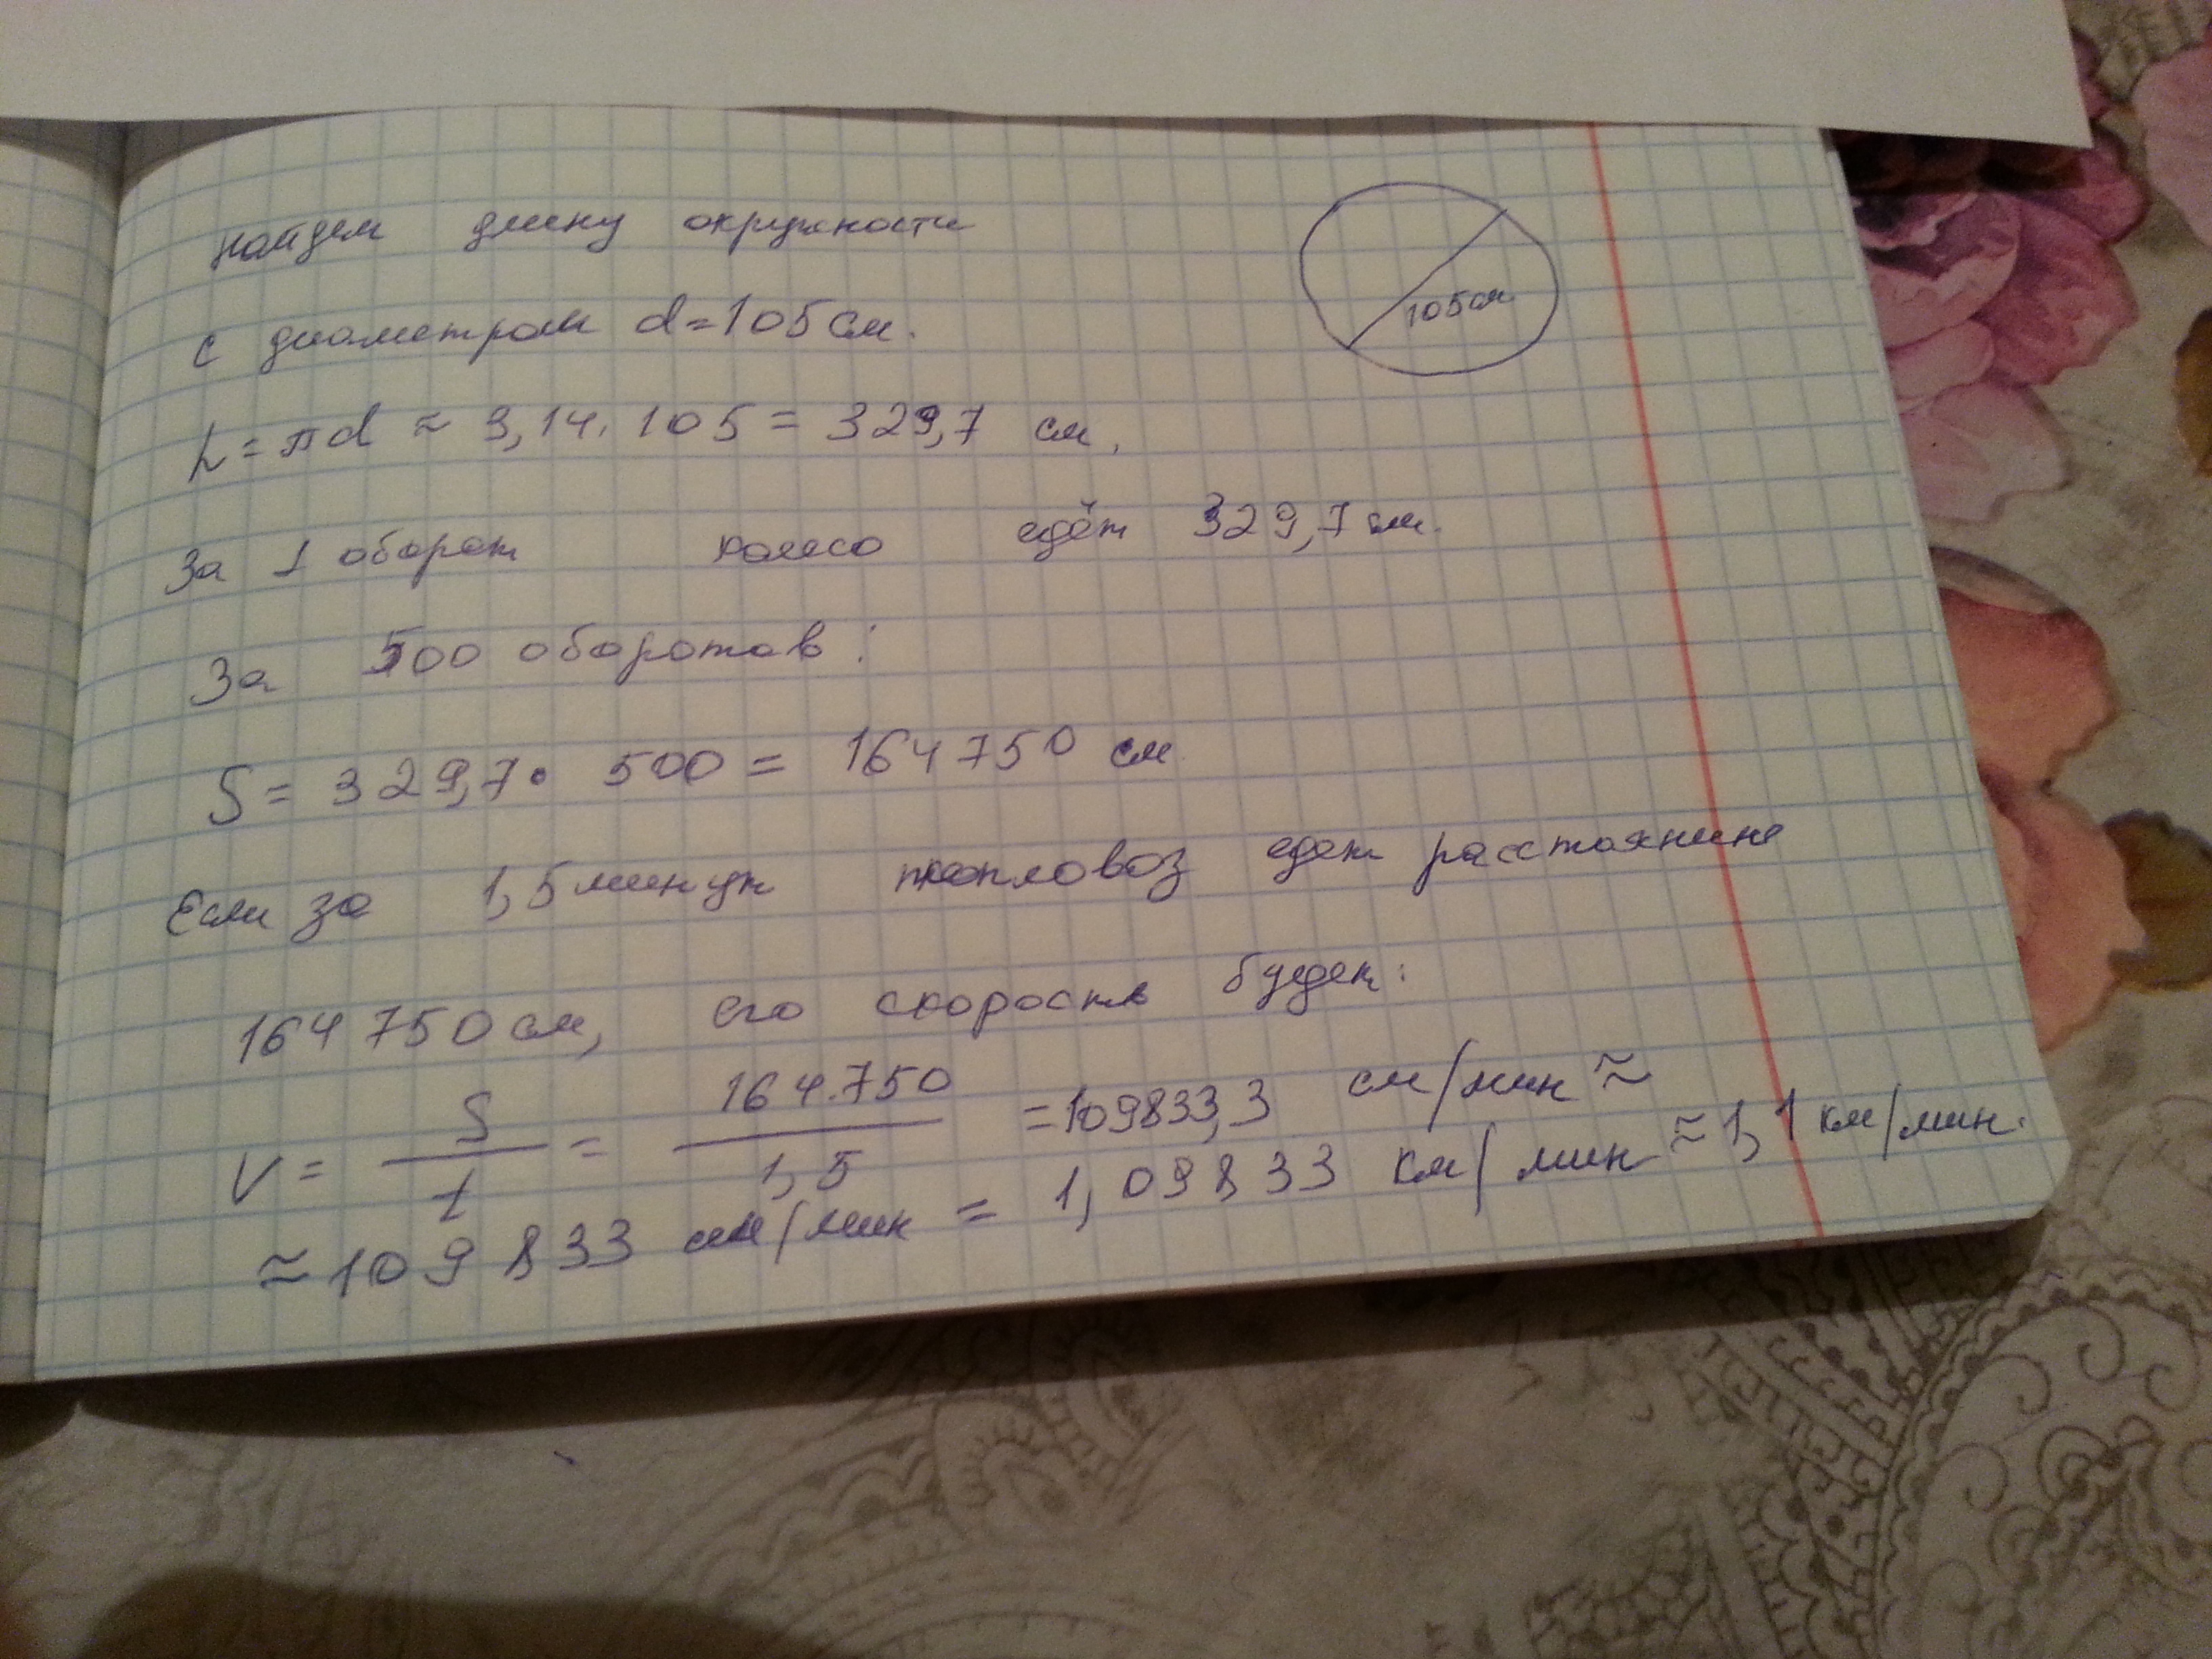 Найдем длину окружности
с диаметром d=105 см.
105 см
L = πd ≈ 3,14 · 105 = 329,7 см.
За 1 оборот колесо едёт 329,7 см.
За 500 оборотов:
S = 329,7 · 500 = 164750 см
Если за 1,5 минут тепловоз едет расстояние
164750 см, его скорость будет:
V = S/t = 164.750/1,5 = 109833,3 см/мин ≈
≈ 109833 см/мин = 1,09833 км/мин ≈ 1,1 км/мин.